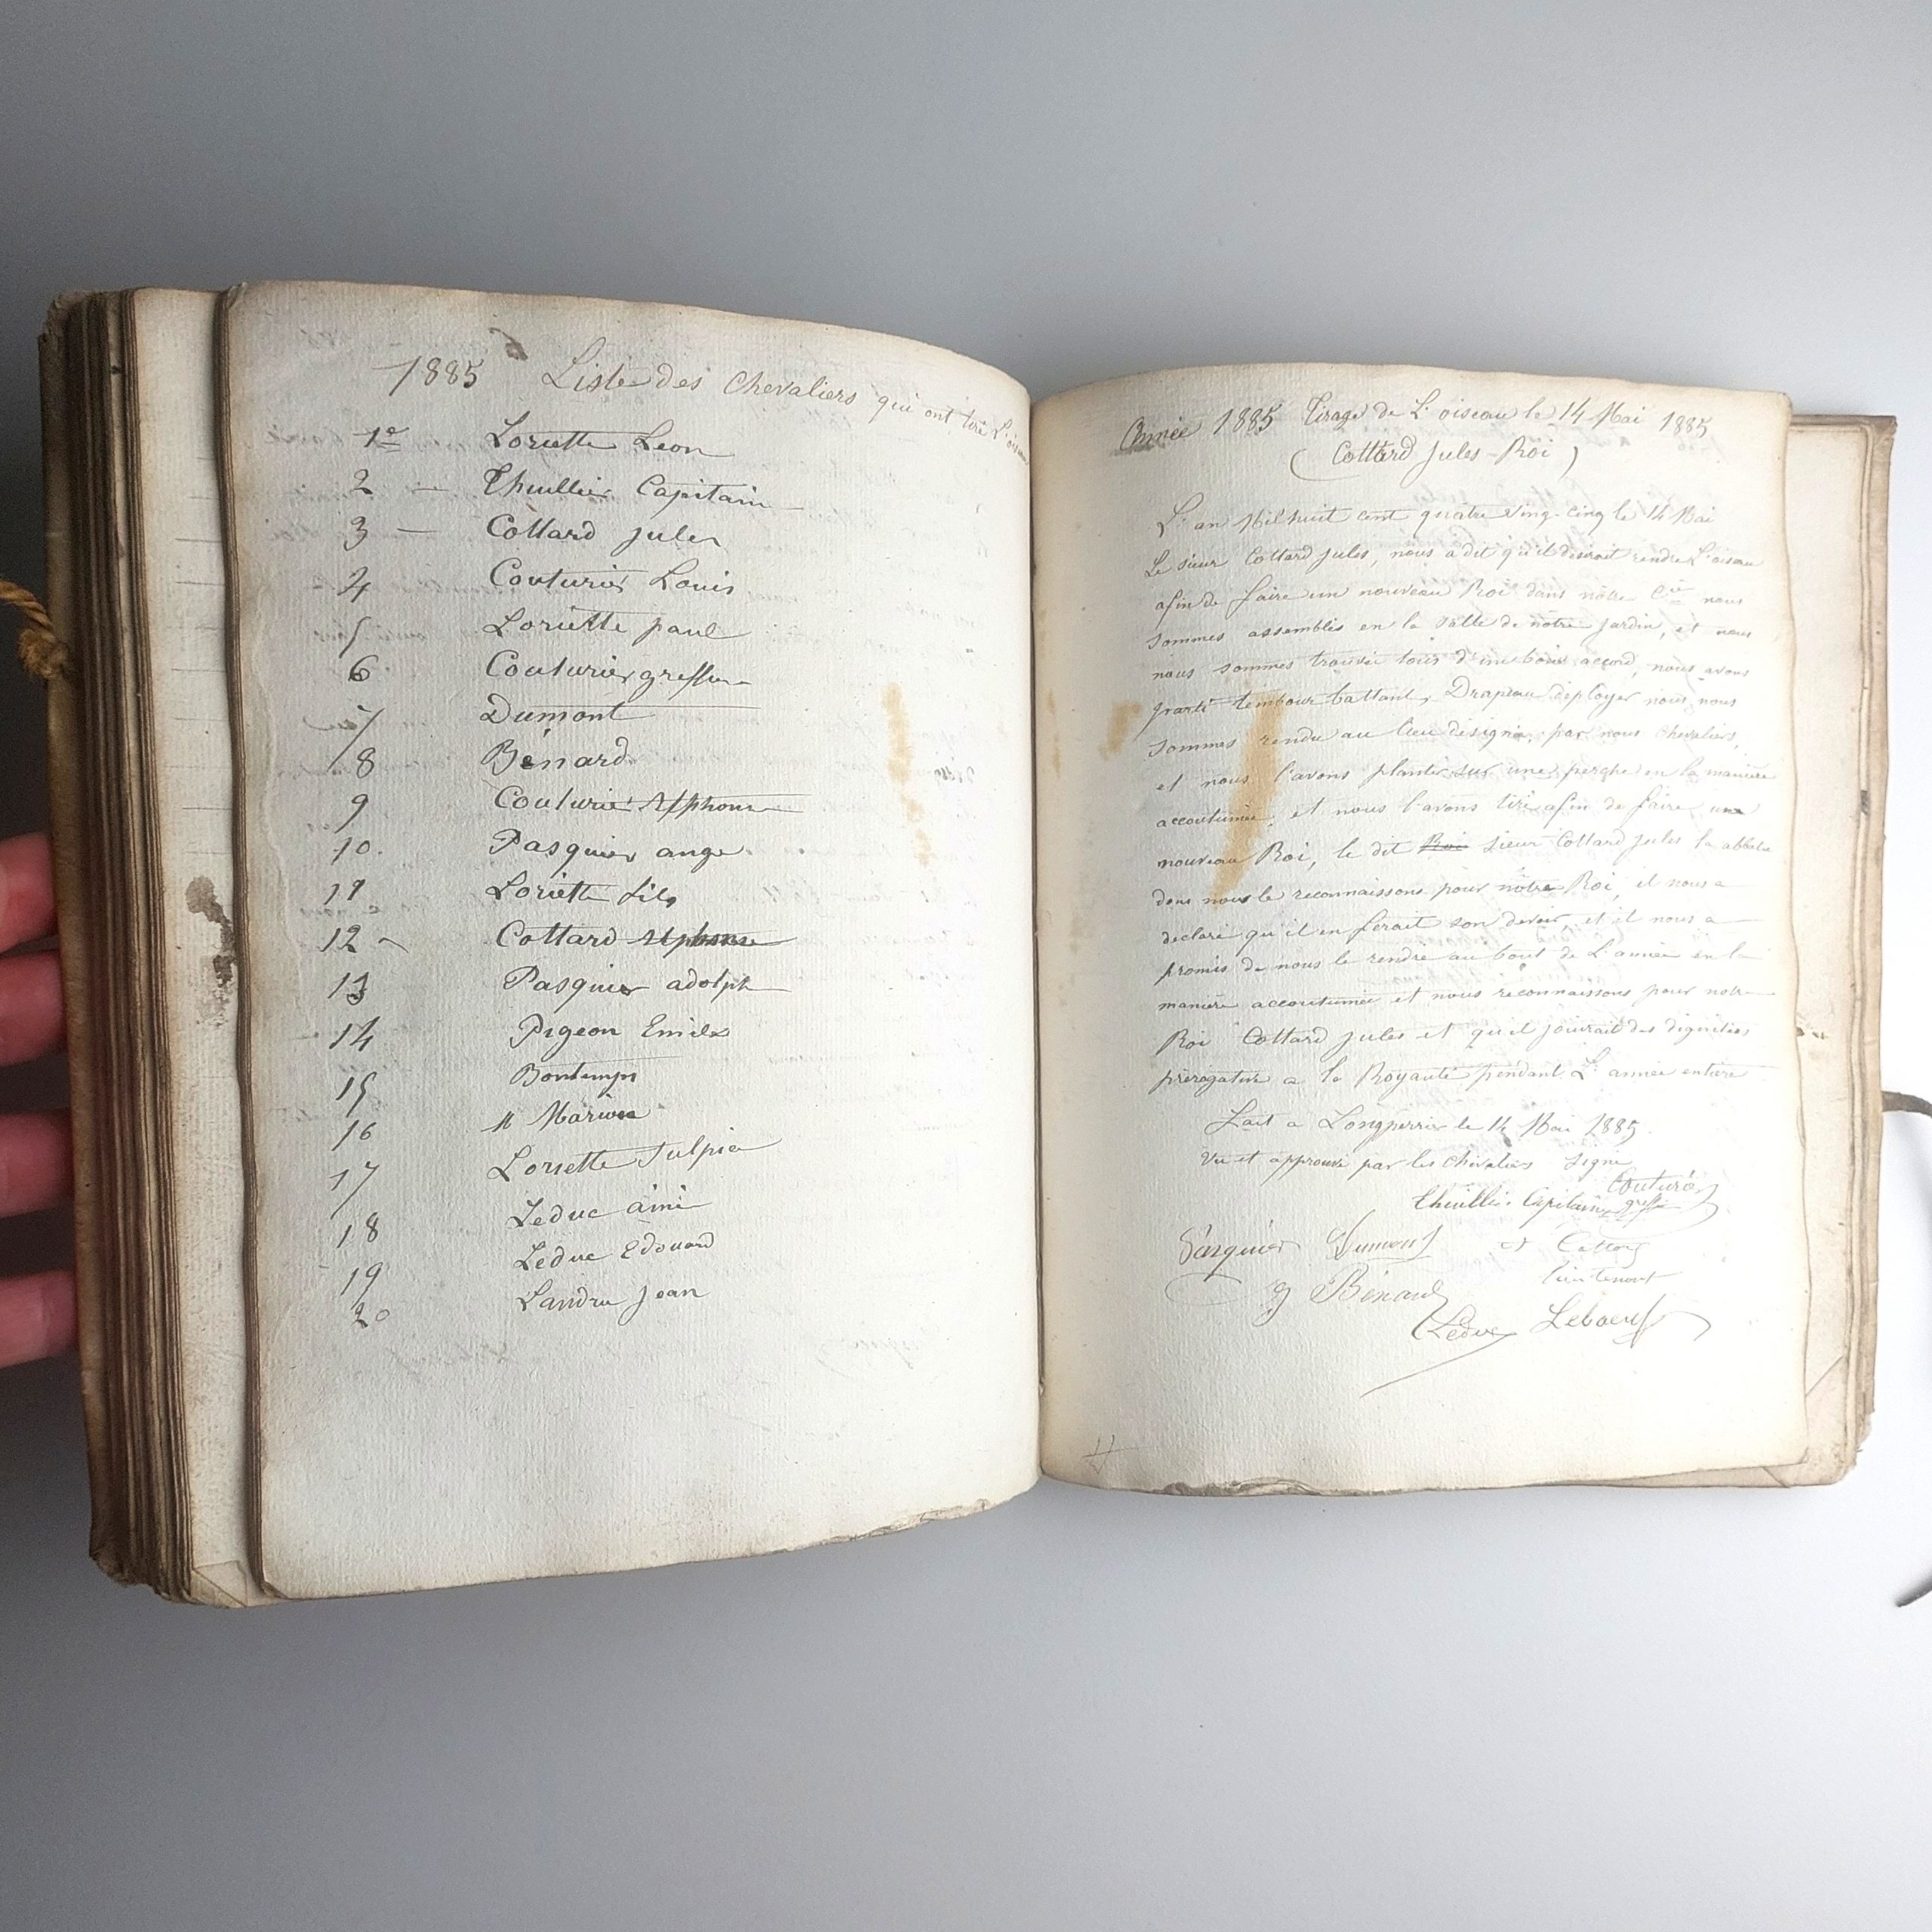 1885 Liste des chevaliers qui ont tiré L'oiseau
1e Loriette Leon
2 — Thuillier Capitain
3 — Cottard jules
4 Couturier Louis
5 Loriette paul
6 Couturier greffier
7 Dumont
8 Bénard
9 Couturier Alphonse
10. Pasquier ange
11 Loriette fils
12 - Cottard Alphonse
13 Pasquier adolph
14 Pigeon Emile
15 Bontemps
16 Marion
17 Loriette Sulpice
18 Leduc ainé
19 Leduc Edouard
20 Landru jean
Année 1885 Tirage de L'oiseau le 14 Mai 1885
(Cottard Jules - Roi)
L'an Mil huit cent quatre ving-cinq le 14 Mai
Le sieur Cottard jules, nous a dit qu'il desirait rendre L'oiseau
afin de faire un nouveau Roi dans nôtre Cie nous
sommes assemblés en la salle de nôtre jardin, et nous
nous sommes trouvée tous d'un bons accord, nous avons
parti tembour battant, Drapeau deployer nous nous
sommes rendu au lieu désigné, par nous chevaliers,
et nous l'avons planter sur une perche en la manière
accoutumée, et nous l'avons tiré afin de faire une
nouveau Roi, le dit Roi sieur Cottard jules la abbatu
dont nous le reconnaissons pour nôtre Roi, il nous a
declaré qu'il en ferait son devoir, et il nous a
promis de nous le rendre au bout de L'année en la
manière accoutumée et nous reconnaissons pour notre
Roi Cottard jules et qu'il jouirait des dignitées,
prérogative a la Royauté pendant L'année entière
Fait a Longperrier le 14 Mai 1885.
Vu et approuvé par les chevaliers signé
Couturier
Thuillier Capitain greffier
Pasquier Dumont et Cottard
lieutenant
g Bénard
Leduc Leboeuf